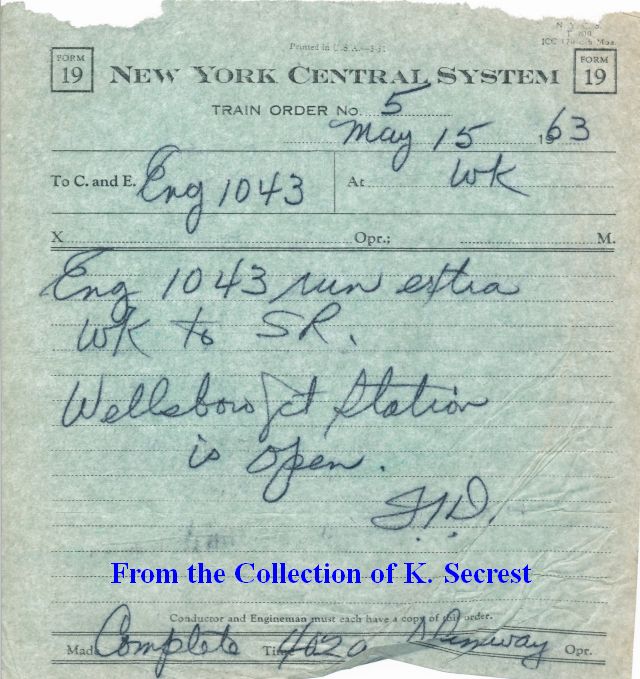 Printed in U.S.A.
FORM 19
NEW YORK CENTRAL SYSTEM
FORM 19
TRAIN ORDER No. 5
May 15 1963
To C. and E. Eng 1043 At WK
X Opr.; M.
Eng 1043 run extra
WK to SR.
Wellsboro Jct Station
is open.
From the Collection of K. Secrest
Conductor and Engineman must each have a copy of this order.
Made Complete Time Opr.